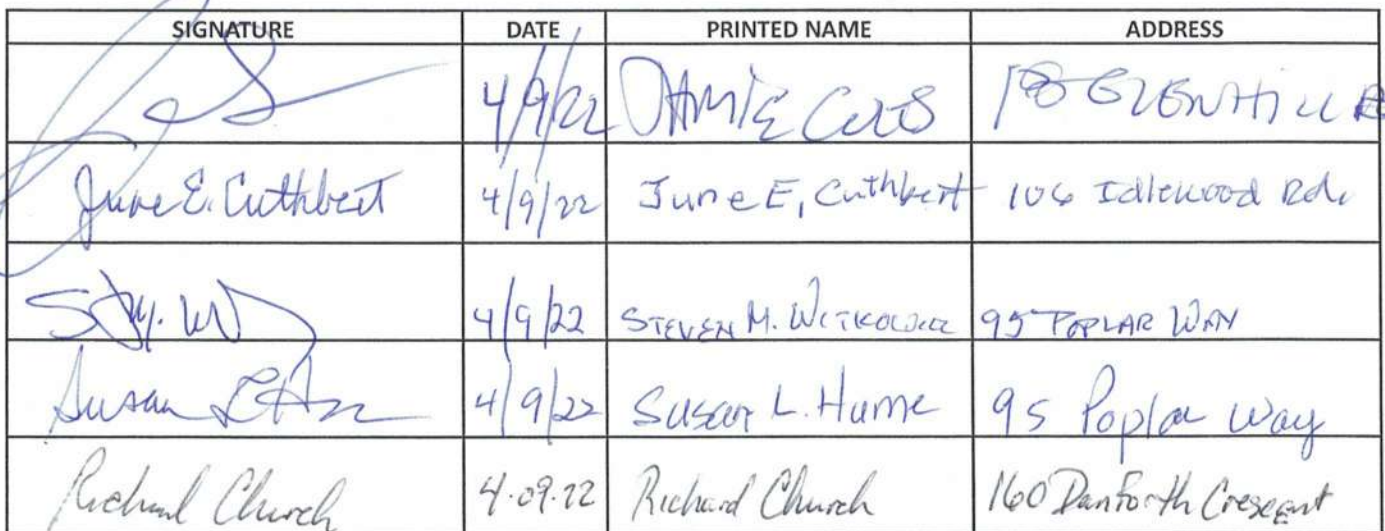 SIGNATURE DATE PRINTED NAME ADDRESS
4/9/22
June E. Cuthbert 4/9/22 June E, Cuthbert 106 Idlewood Rd.
4/9/22 STEVEN M. 95 POPLAR WAY
Susan 4/9/22 Susan L. Hume 95 Poplar Way
Richard Church 4.09.22 Richard Church 160 Danforth Crescent